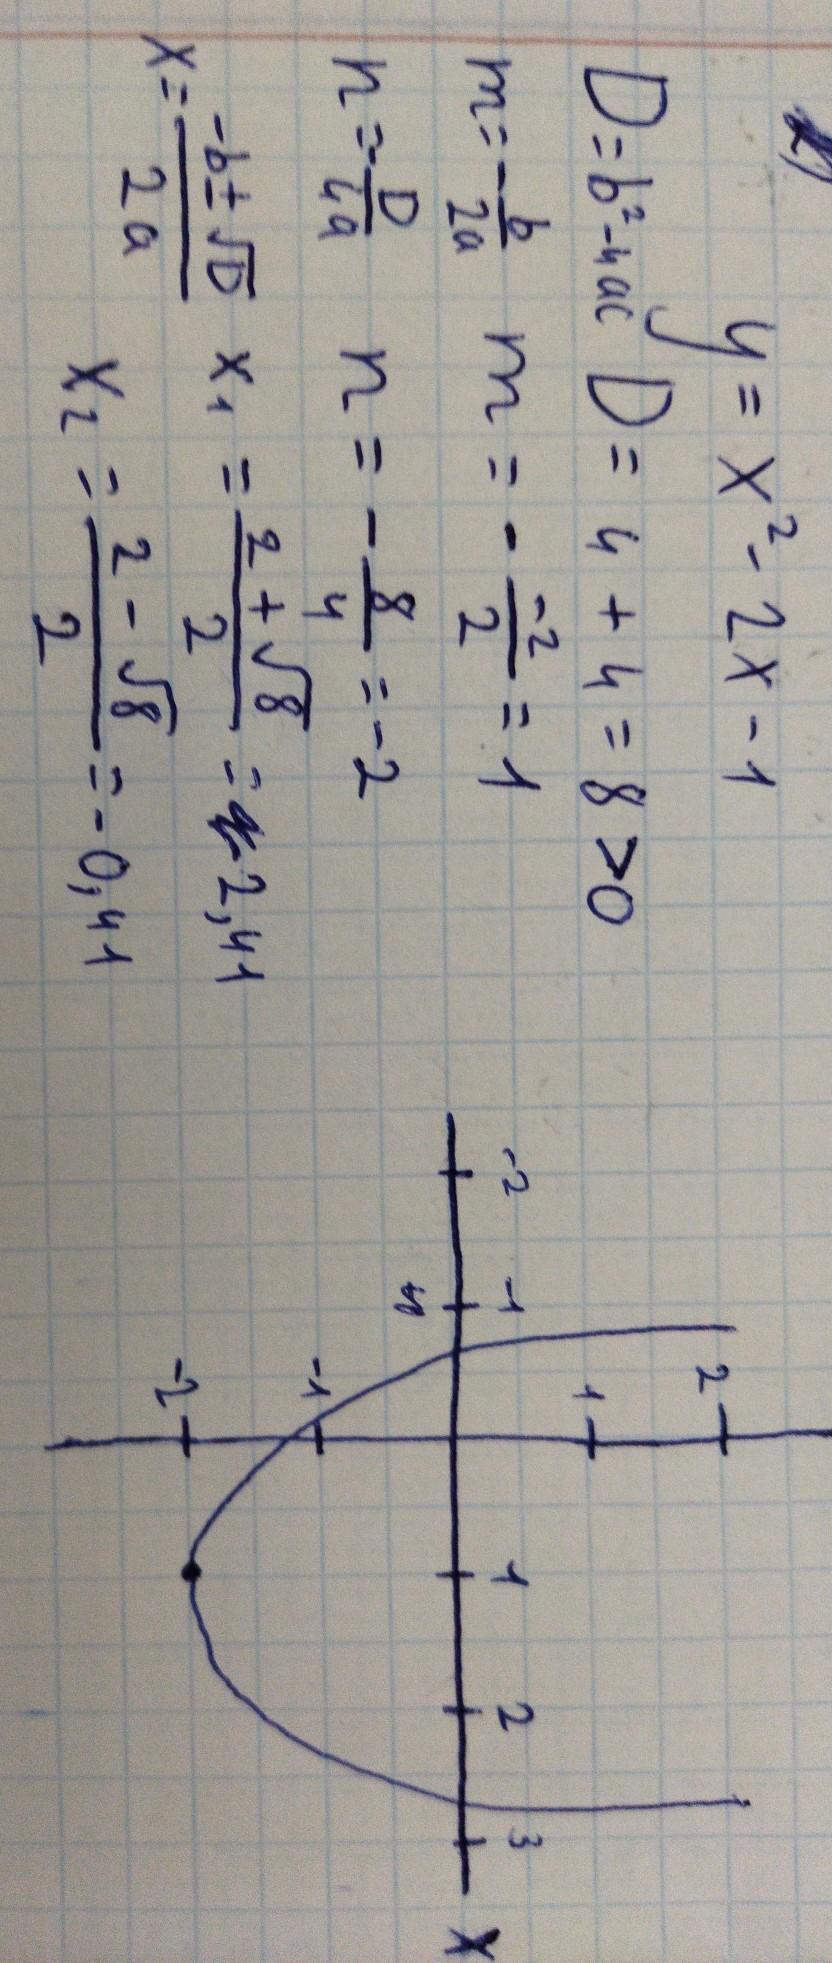 2)
y = x² - 2x - 1
D = b² - 4ac D = 4 + 4 = 8 > 0
m = - b/2a m = - -2/2 = 1
n = - D/4a n = - 8/4 = -2
x = -b ± √D / 2a x₁ = 2 + √8 / 2 = 2,41
x₂ = 2 - √8 / 2 = -0,41
2
1
-2 -1 1 2 3 x
-1
-2